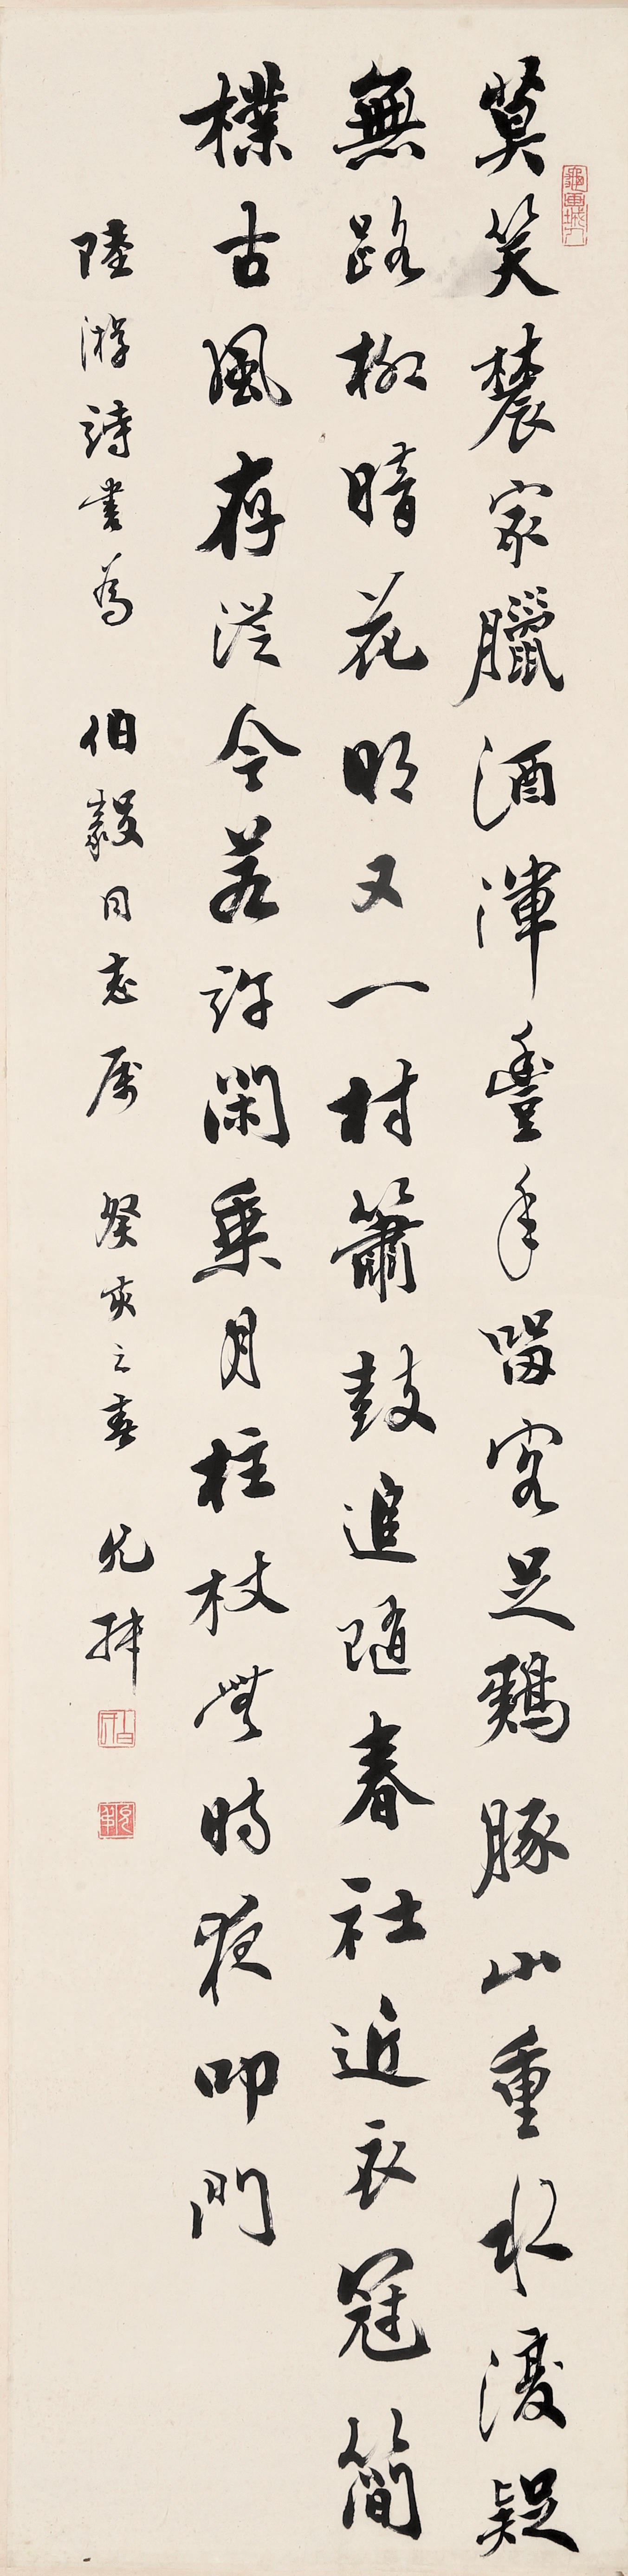 莫笑農家臘酒渾豐年留客足鷄豚山重水復疑
無路柳暗花明又一村簫鼓追隨春社近衣冠簡
樸古風存從今若許閑乘月柱杖無時夜叩門
陸游詩書為 伯毅同志屬 癸亥之春 允